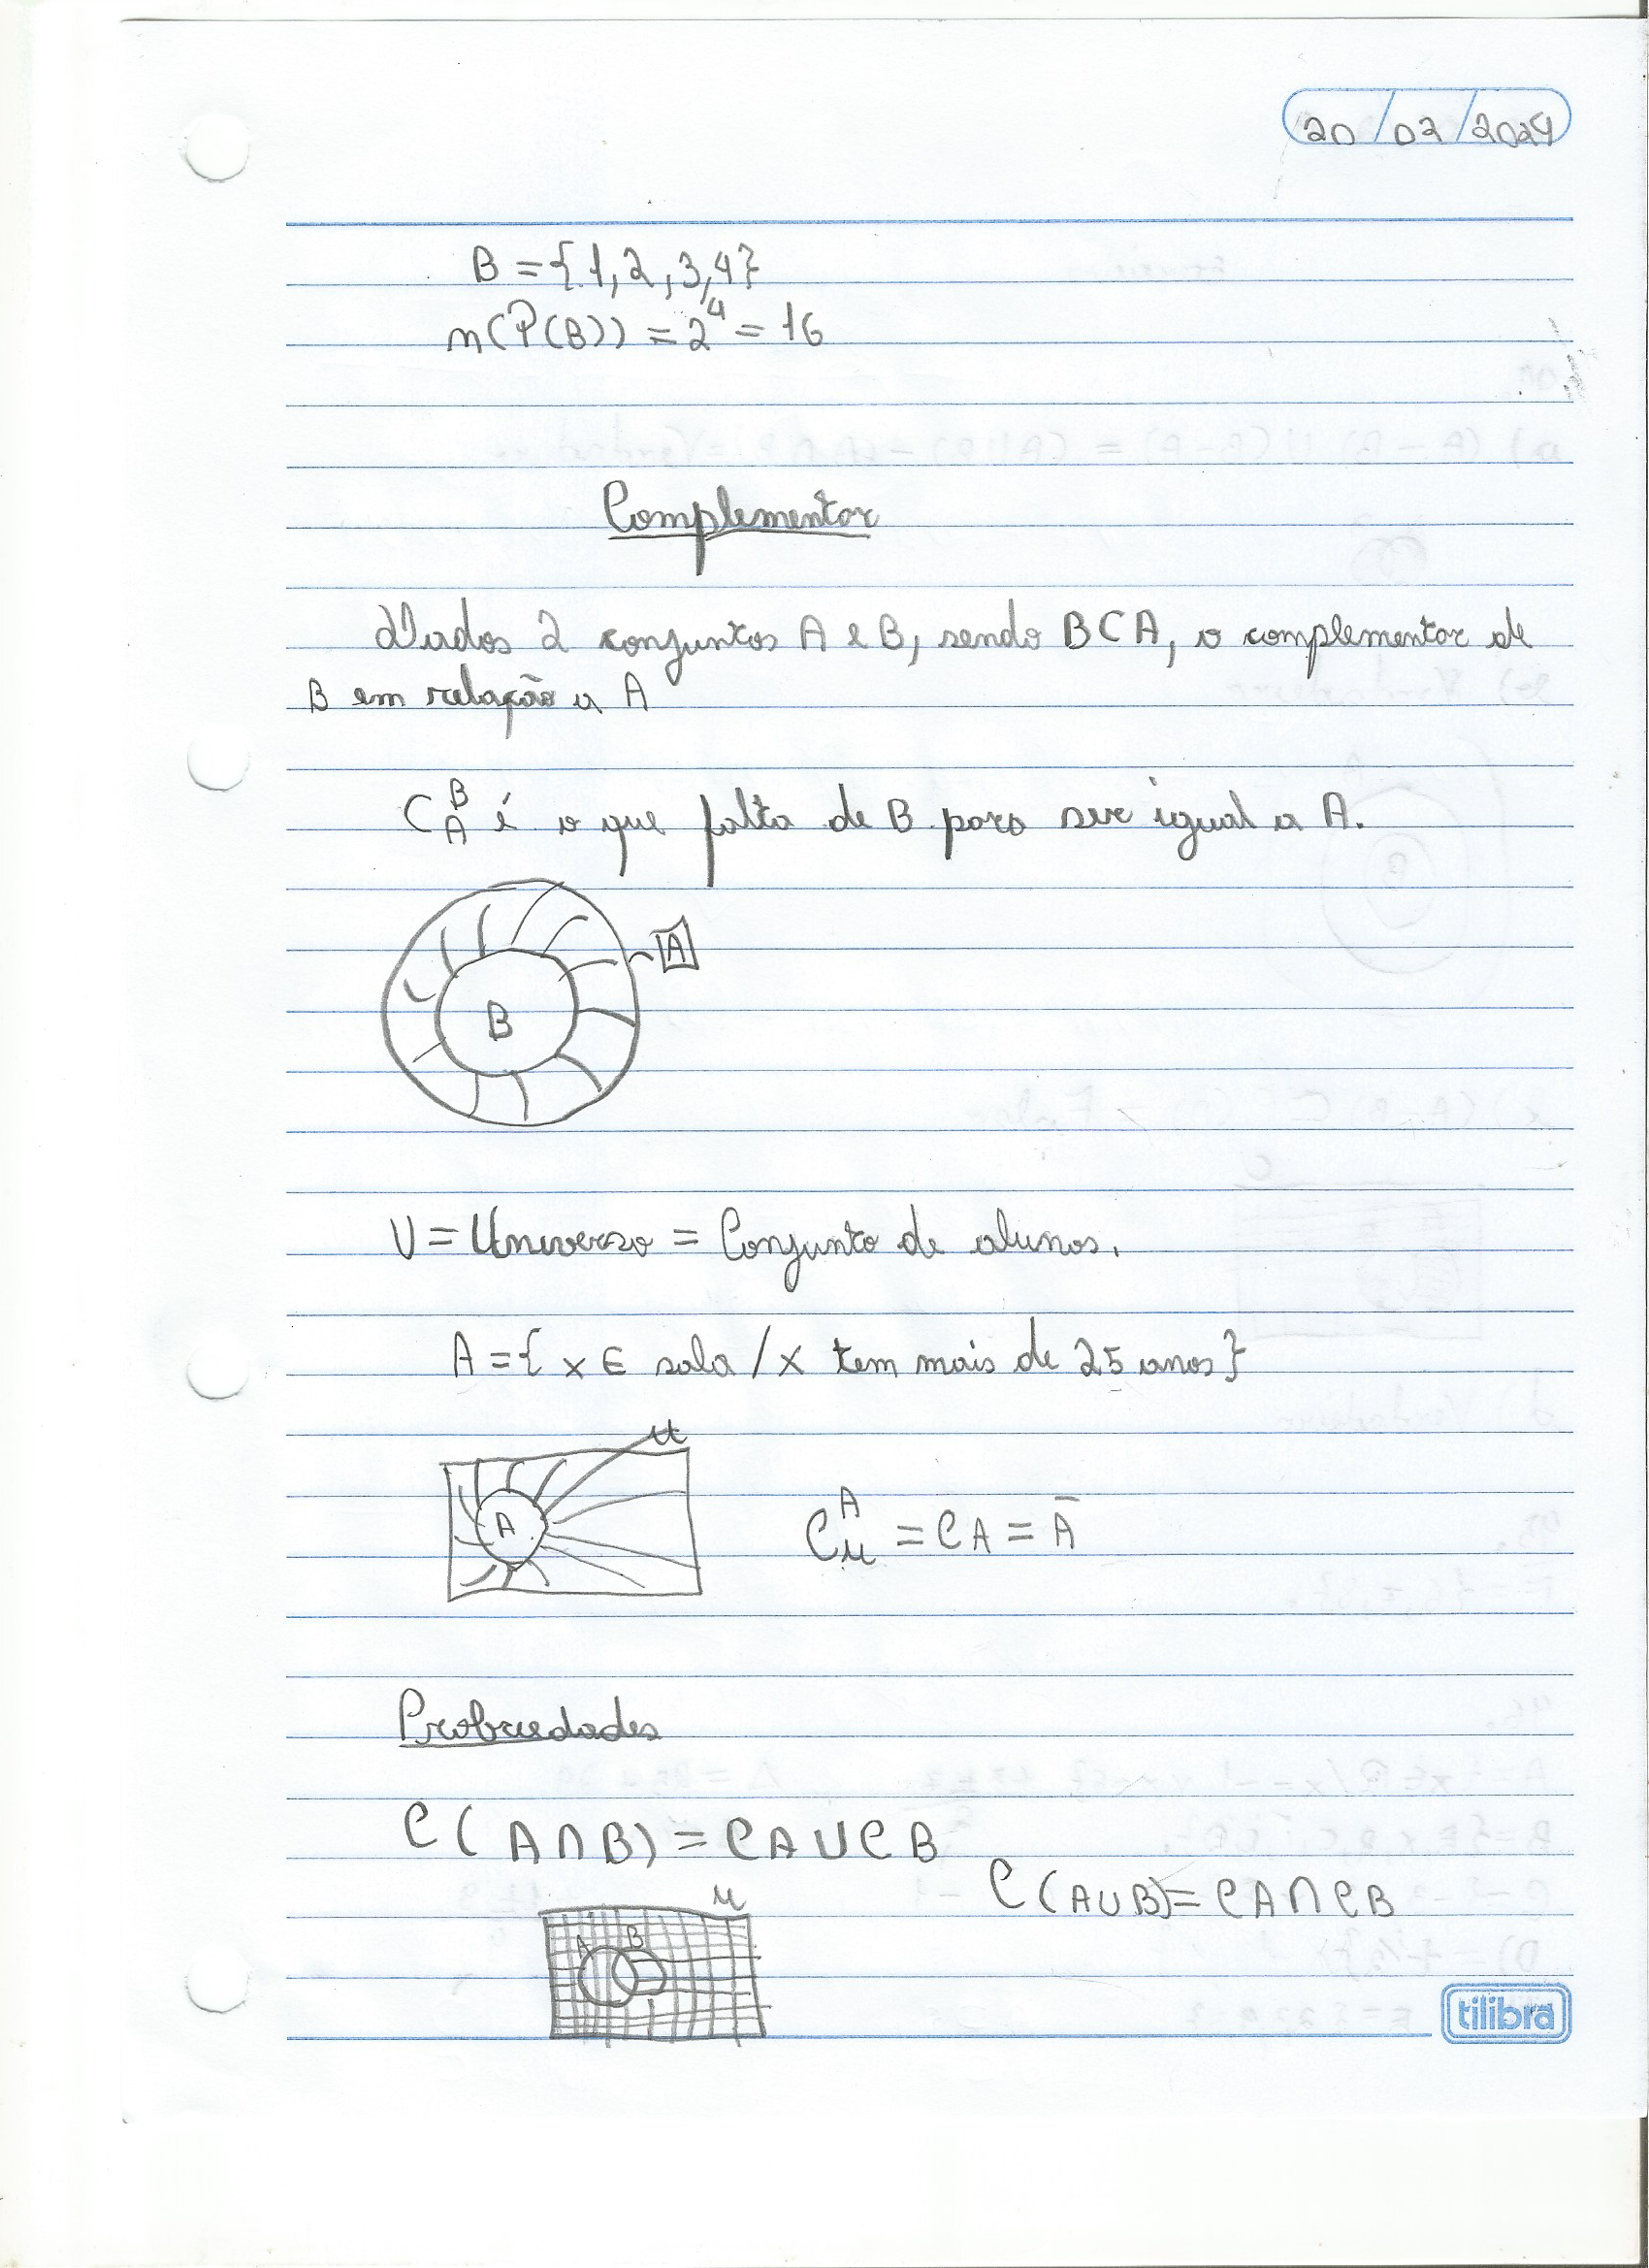 20/02/2024
B = {1, 2, 3, 4}
n(P(B)) = 2⁴ = 16
Complementar
Dados 2 conjuntos A e B, sendo B ⊂ A, o complementar de
B em relação a A
C_A^B é o que falta de B para ser igual a A.
A
B
U = Universo = Conjunto de alunos.
A = { x ∈ sala / x tem mais de 25 anos}
U
A
C_U^A = CA = Ā
Probriedades
C(A∩B) = CA∪CB
C(A∪B) = CA∩CB
U
A B
tilibra